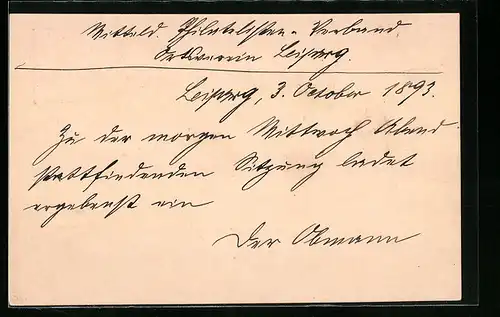 Mitteld. Philatelisten-Verband.
Ortsverein Leipzig.
Leipzig, 3. October 1893.
Zu der morgen Mittwoch Abend
stattfindenden Sitzung ladet
ergebenst ein
Der Obmann